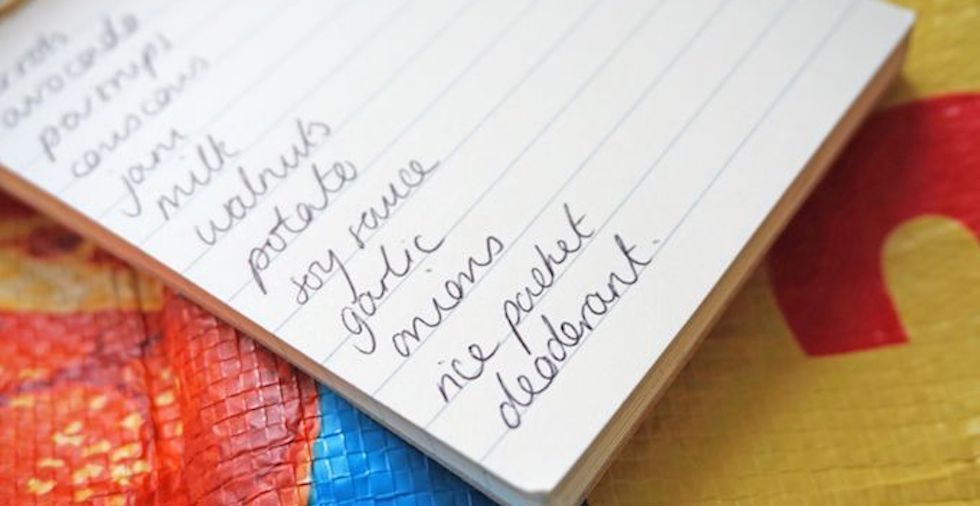 avocado
parsnips
couscous
jam
milk
walnuts
potato
soy sauce
garlic
onions
rice packet
deoderant.